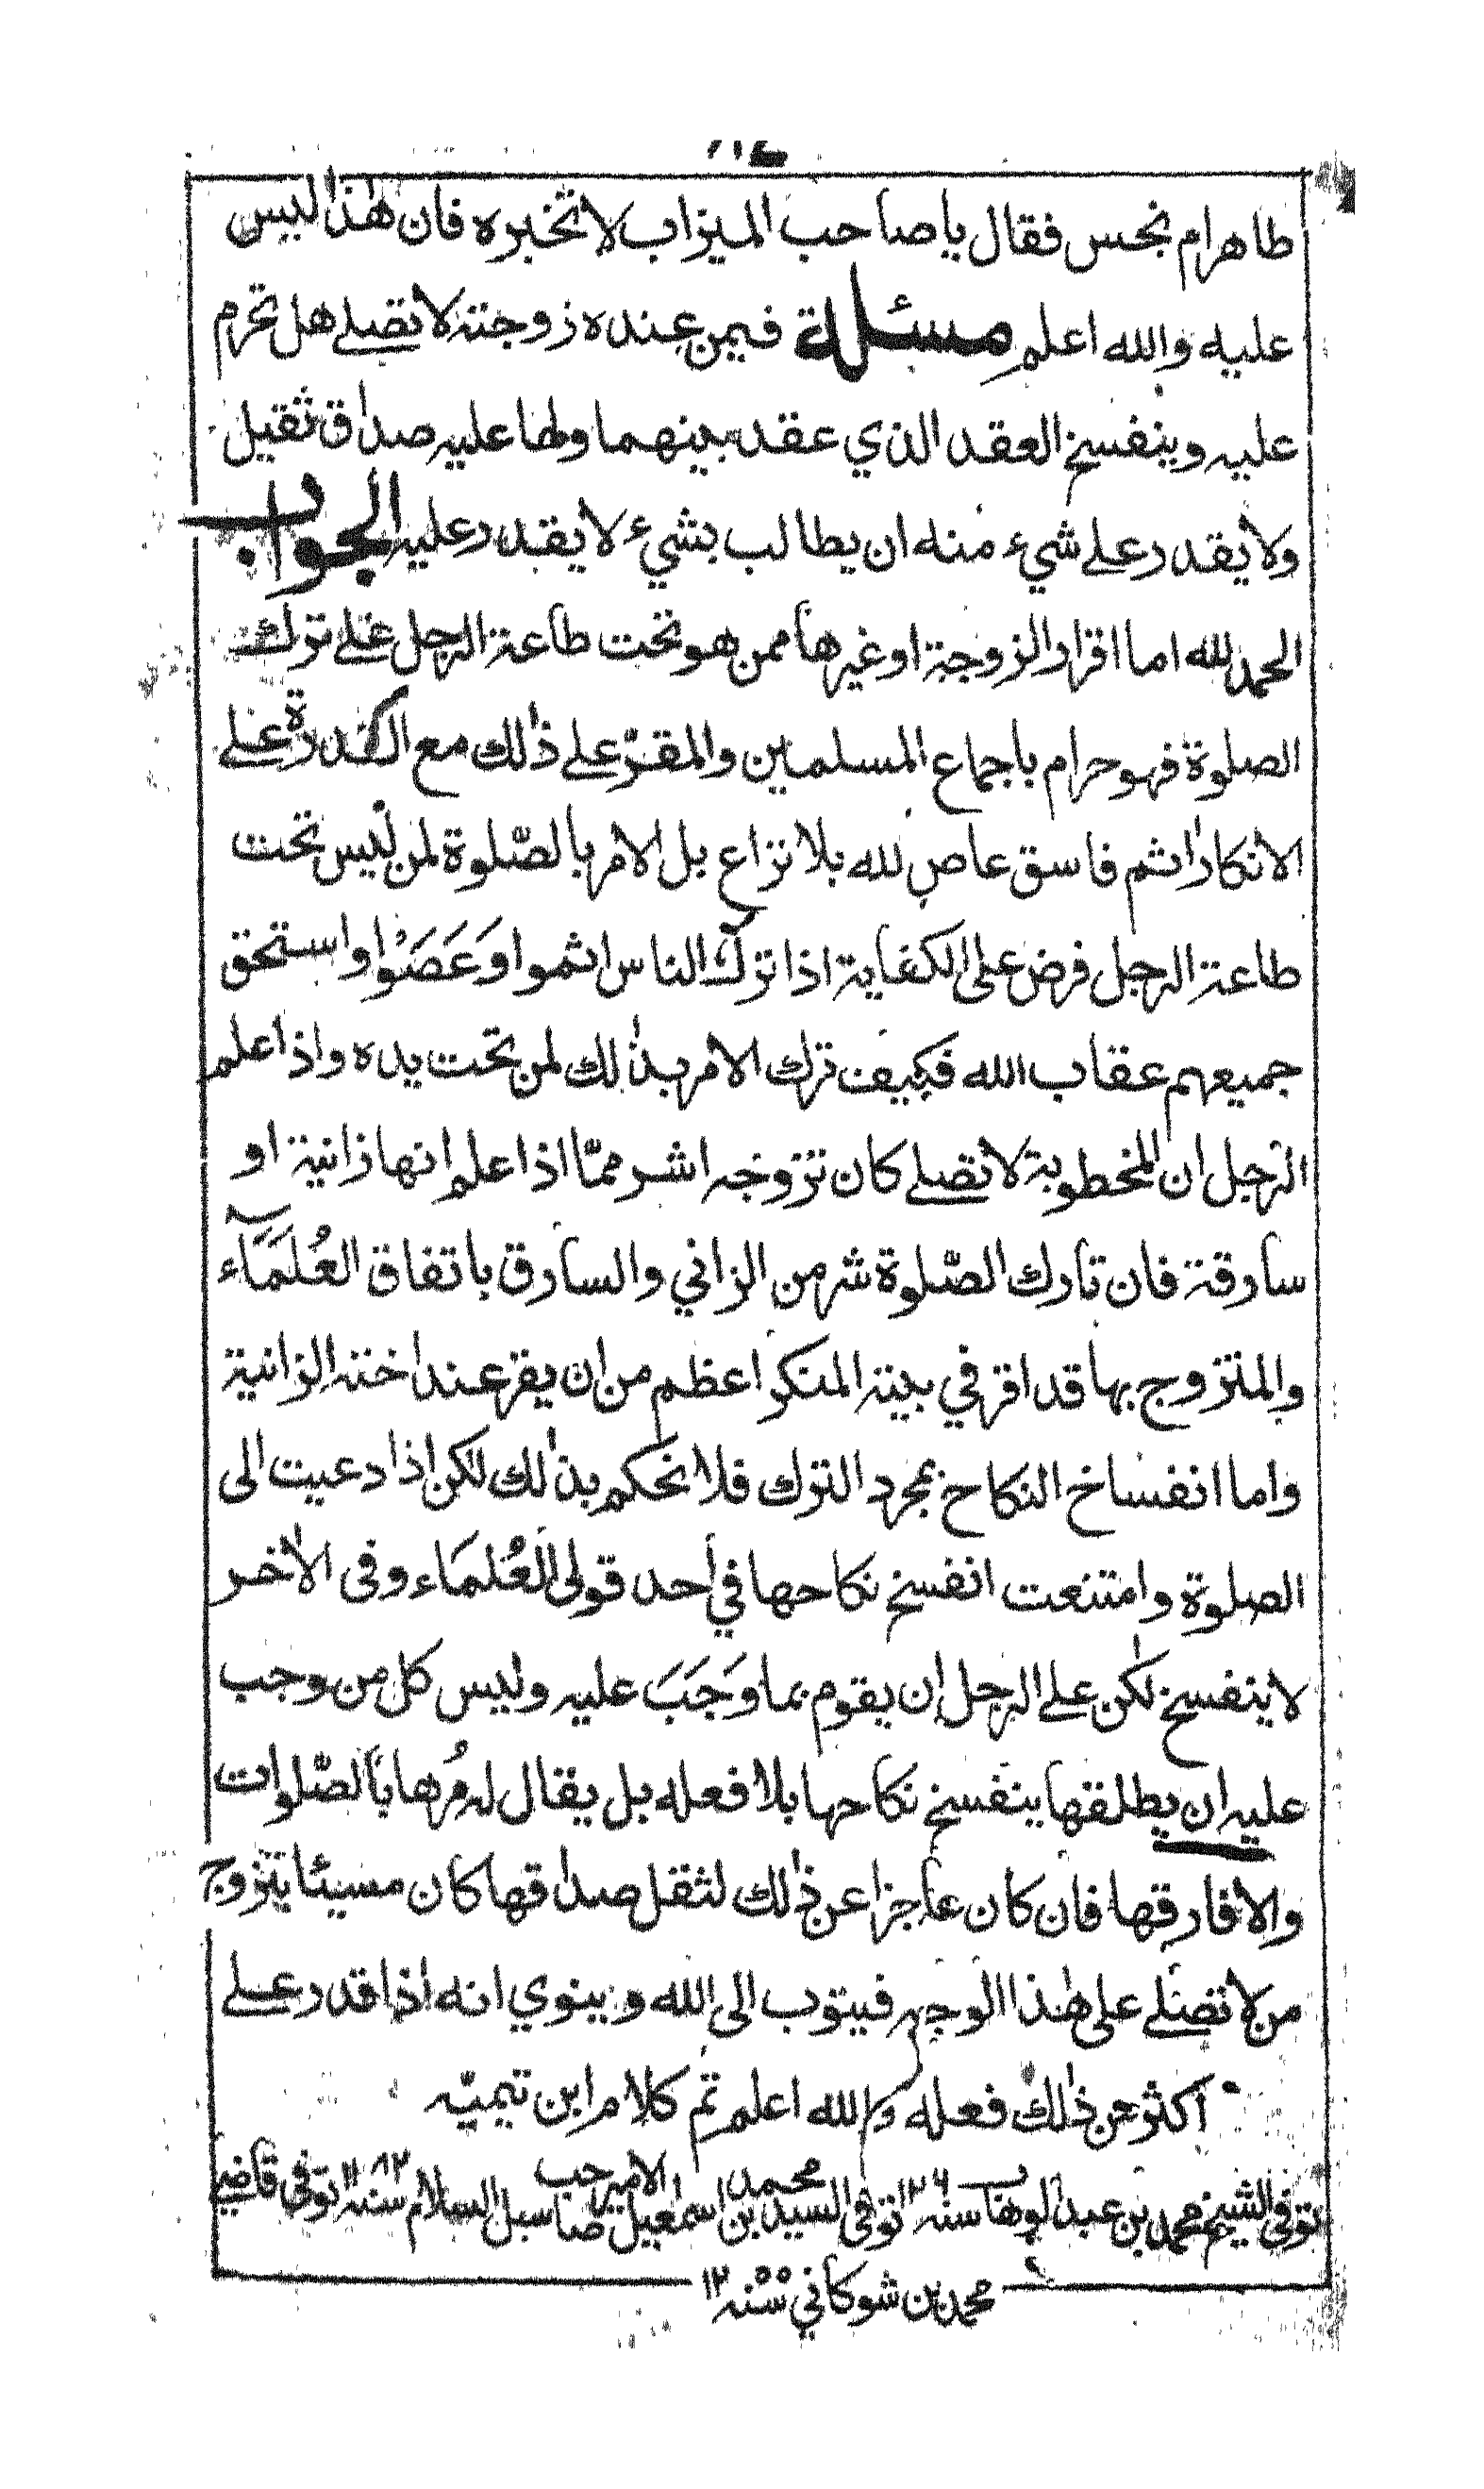 طاهرام نجس فقال يا صاحب الميزاب لا تخبره فان هٰذا ليس
عليه والله اعلم مسئلة فيمن عنده زوجته لا تصلے هل تحرم
عليه وينفسخ العقد الذي عقد بينهما ولها عليه صداق ثقيل
ولا يقدر علے شيء منه ان يطالب بشيء لا يقدر عليه الجواب
الحمد لله اما اقرار الزوجة او غيرها ممن هو تحت طاعة الرجل علے ترك
الصلوة فهو حرام باجماع المسلمين والمقرّ علے ذٰلك مع القدرة علے
الانكار اثم فاسق عاصٍ لله بلا نزاع بل الامر بالصّلوة لمن ليس تحت
طاعة الرجل فرض على الكفاية اذا ترك الناس اثموا وَعَصَوْا واستحق
جميعهم عقاب الله فكيف ترك الامر بذٰلك لمن تحت يده واذا علم
الرجل ان المخطوبة لا تصلے كان تزوجه اشر ممّا اذا علم انها زانية او
سارقة فان تارك الصّلوة شر من الزاني والسارق باتفاق العُلَمَآء
والمتزوج بها قد اقر في بيته المنكر اعظم من ان يقر عند اخته الزانية
واما انفساخ النكاح بمجرد الترك فلا نحكم بذٰلك لكن اذا دعيت الى
الصلوة وامتنعت انفسخ نكاحها في أحد قولى العُلمَاء وفى الاٰخر
لا ينفسخ لٰكن علے الرجل ان يقوم بما وَجَبَ عليه وليس كل من وجب
عليه ان يطلقها ينفسخ نكاحها بلا فعله بل يقال له مُرها بالصّلوات
والا فارقها فان كان عاجزا عن ذٰلك لثقل صداقها كان مسيئا يتزوج
من لا تصلے على هٰذا الوجه فيتوب الى الله وينوي انه اذا قدر علے
اكثر من ذٰلك فعله والله اعلم تم كلام ابن تيميّه
توفى الشيخ محمد بن عبد الوهاب سنه ١٢٠٦ توفى السيد محمد بن اسمٰعيل الامير صاحب سبل السلام سنه ١١٨٢ توفى قاضي
محمد بن شوكاني سنه ١٢٥٥